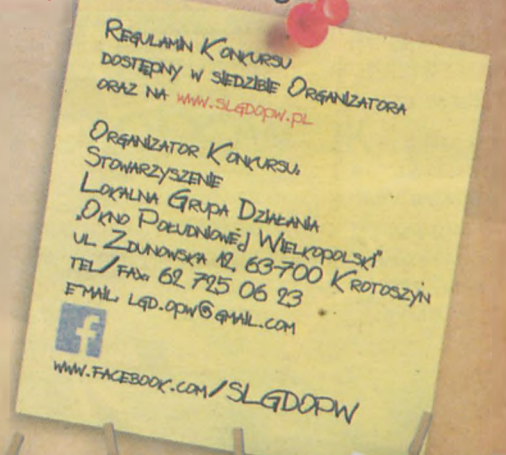 Regulamin Konkursu
dostępny w siedzibie Organizatora
oraz na www.slgdopw.pl
Organizator Konkursu:
Stowarzyszenie
Lokalna Grupa Działania
„Okno Południowej Wielkopolski"
ul. Zdunowska 12, 63-700 Krotoszyn
tel/fax: 62 725 06 23
e-mail: lgd.opw@gmail.com
f
www.facebook.com/SLGDOPW